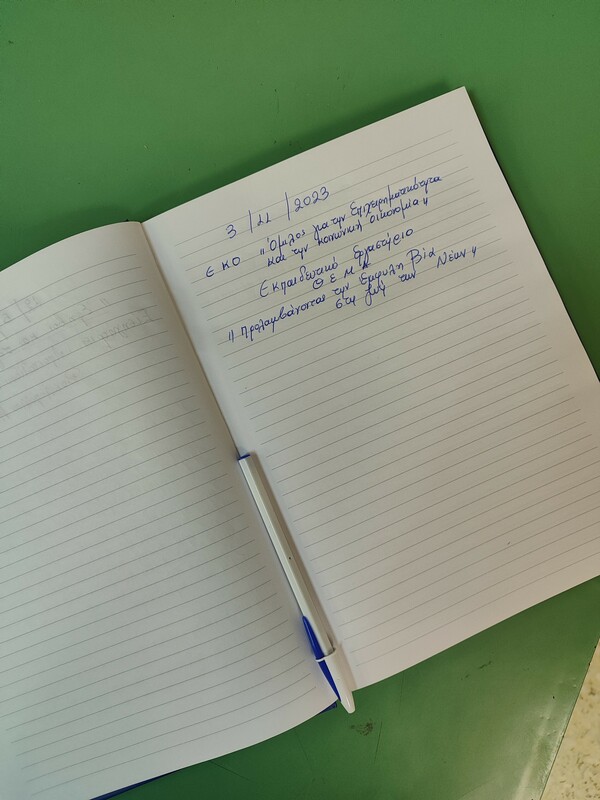 3/11/2023
ΕΚΟ "Όμιλος για την Επιχειρηματικότητα
και την κοινωνική οικονομία"
Εκπαιδευτικό Εργαστήριο
ΘΕΜΑ
"Προλαμβάνοντας την Έμφυλη Βία
στη ζωή των Νέων"